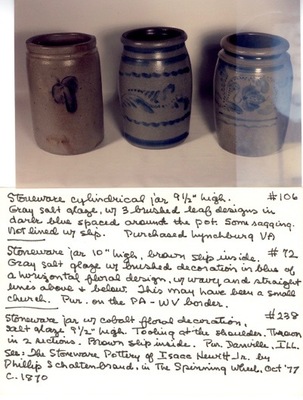 Stoneware cylindrical jar 9½" high. #106
Gray salt glaze, w/ 3 brushed leaf designs in
darker blue spaced around the pot. Some sagging.
Not lined w/ slip. Purchased Lynchburg VA
Stoneware jar 10" high, brown slip inside. #72
Gray salt glaze w/ brushed decoration in blue of
a horizontal floral design, w/ wavy and straight
lines above & below. This may have been a small
churn. Pur. on the PA-WV border.
#238
Stoneware jar w/ cobalt floral decoration,
salt glaze 9½" high. Tooling at the shoulder. Thrown
in 2 sections. Brown slip inside. Pur. Danville, ILL.
See: The Stoneware Pottery of Isaac Hewitt Jr. by
Phillip Schaltenbrand, in The Spinning Wheel, Oct '77
C. 1870